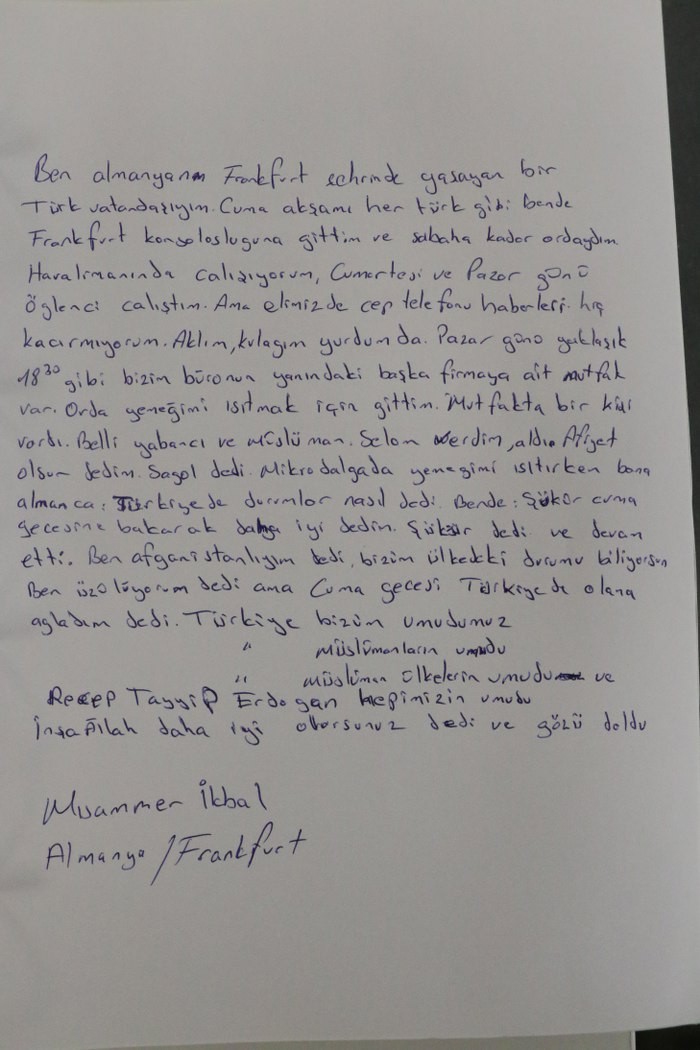 Ben almanyanın Frankfurt sehrinde yaşayan bir
Türk vatandaşıyım. Cuma akşamı her türk gibi bende
Frankfurt konsolosluguna gittim ve sabaha kadar ordaydım.
Havalimanında calışıyorum, Cumartesi ve Pazar günü
Öğlenci calıştım. Ama elimizde cep telefonu haberleri hiç
kacırmıyorum. Aklım, kulagım yurdumda. Pazar günü yaklaşık
18 30 gibi bizim büronun yanındaki başka firmaya ait mutfak
var. Orda yemeğimi ısıtmak için gittim. Mutfakta bir kişi
vardı. Belli yabancı ve Müslüman. Selam verdim, aldı. Afiyet
olsun dedim. Sagol dedi. Mikrodalgada yemegimi ısıtırken bana
almanca: Türkiyede durumlar nasıl dedi. Bende: Şükür cuma
gecesine bakarak daha iyi dedim. Şükür dedi ve devam
etti. Ben afganistanlıyım dedi, bizim ülkedeki durumu biliyorsun
Ben üzülüyorum dedi ama Cuma gecesi Türkiyede olana
agladım dedi. Türkiye bizim umudumuz
" müslümanların umudu
" müslüman ülkelerin umudu ve
Recep Tayyip Erdogan hepimizin umudu
İnşaAllah daha iyi olursunuz dedi ve gözü doldu
Muammer İkbal
Almanya / Frankfurt